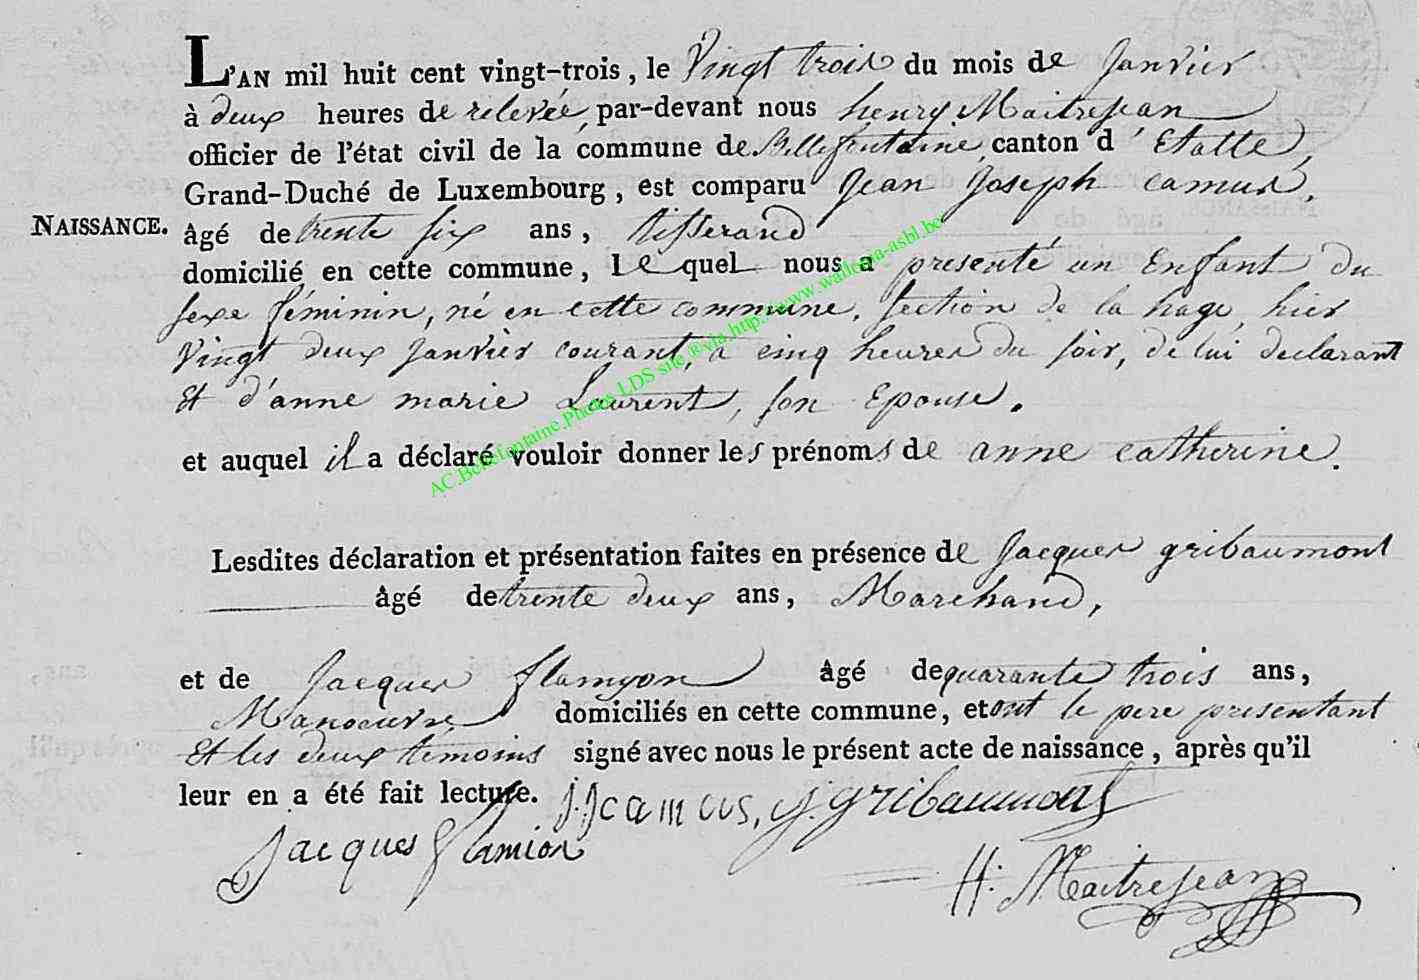 L'AN mil huit cent vingt-trois, le Vingt trois du mois de Janvier
à deux heures de relevée, par-devant nous henry Maitrejean
officier de l'état civil de la commune de Bellefontaine, canton d'Etalle,
Grand-Duché de Luxembourg, est comparu Jean Joseph camus,
NAISSANCE. âgé de trente six ans, tisserand
domicilié en cette commune, lequel nous a presenté un Enfant du
sexe féminin, né en cette commune, section de la hage, hier
Vingt deux Janvier courant, à cinq heures du soir, de lui declarant
Et d'anne marie Laurent, son Epouse.
et auquel il a déclaré vouloir donner les prénoms de anne catherine.
AC.Bellefontaine.Photos LDS site ®via.http://www.wallonia-asbl.be/
Lesdites déclaration et présentation faites en présence de Jacques gribaumont
âgé de trente deux ans, Marchand,
et de Jacques flamyon âgé de quarante trois ans,
Manoeuvre domiciliés en cette commune, et ont le pere presentant
Et les deux temoins signé avec nous le présent acte de naissance, après qu'il
leur en a été fait lecture. J.Jcamus, J.gribaumont
Jacques flamion
H. Maitrejean